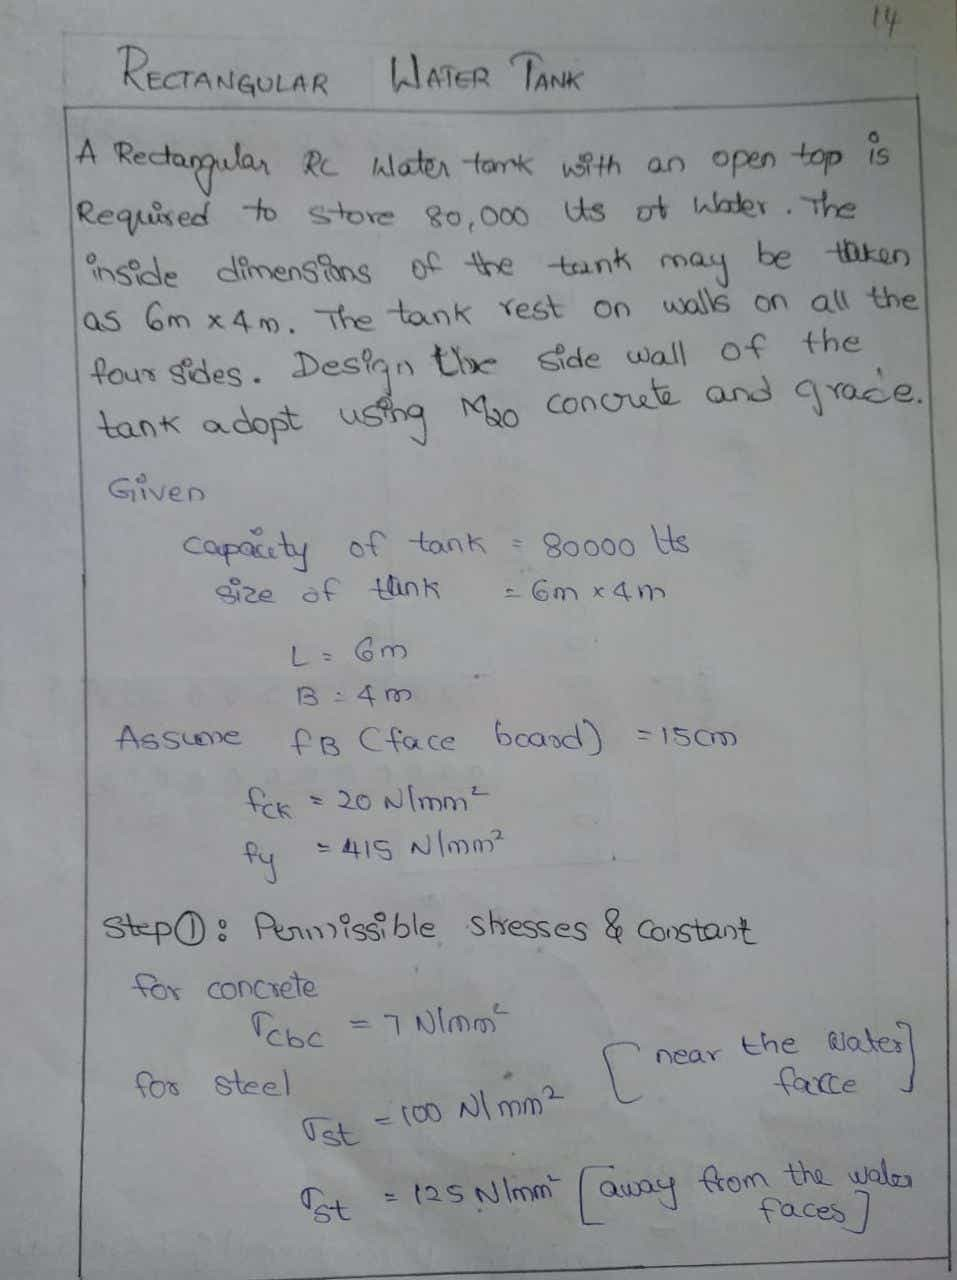 14
RECTANGULAR WATER TANK
A Rectangular RC Water tank with an open top is
Required to store 80,000 lts of Water. The
inside dimensions of the tank may be taken
as 6m x 4m. The tank rest on walls on all the
four sides. Design the side wall of the
tank adopt using M20 concrete and grade.
Given
capacity of tank = 80000 lts
size of tank = 6m x 4m
L = 6m
B = 4m
Assume fB (face board) = 15cm
fck = 20 N/mm²
fy = 415 N/mm²
Step ①: Permissible stresses & constant
for concrete
σcbc = 7 N/mm²
for steel
σst = 100 N/mm² [near the water
farce]
σst = 125 N/mm² [away from the water
faces]